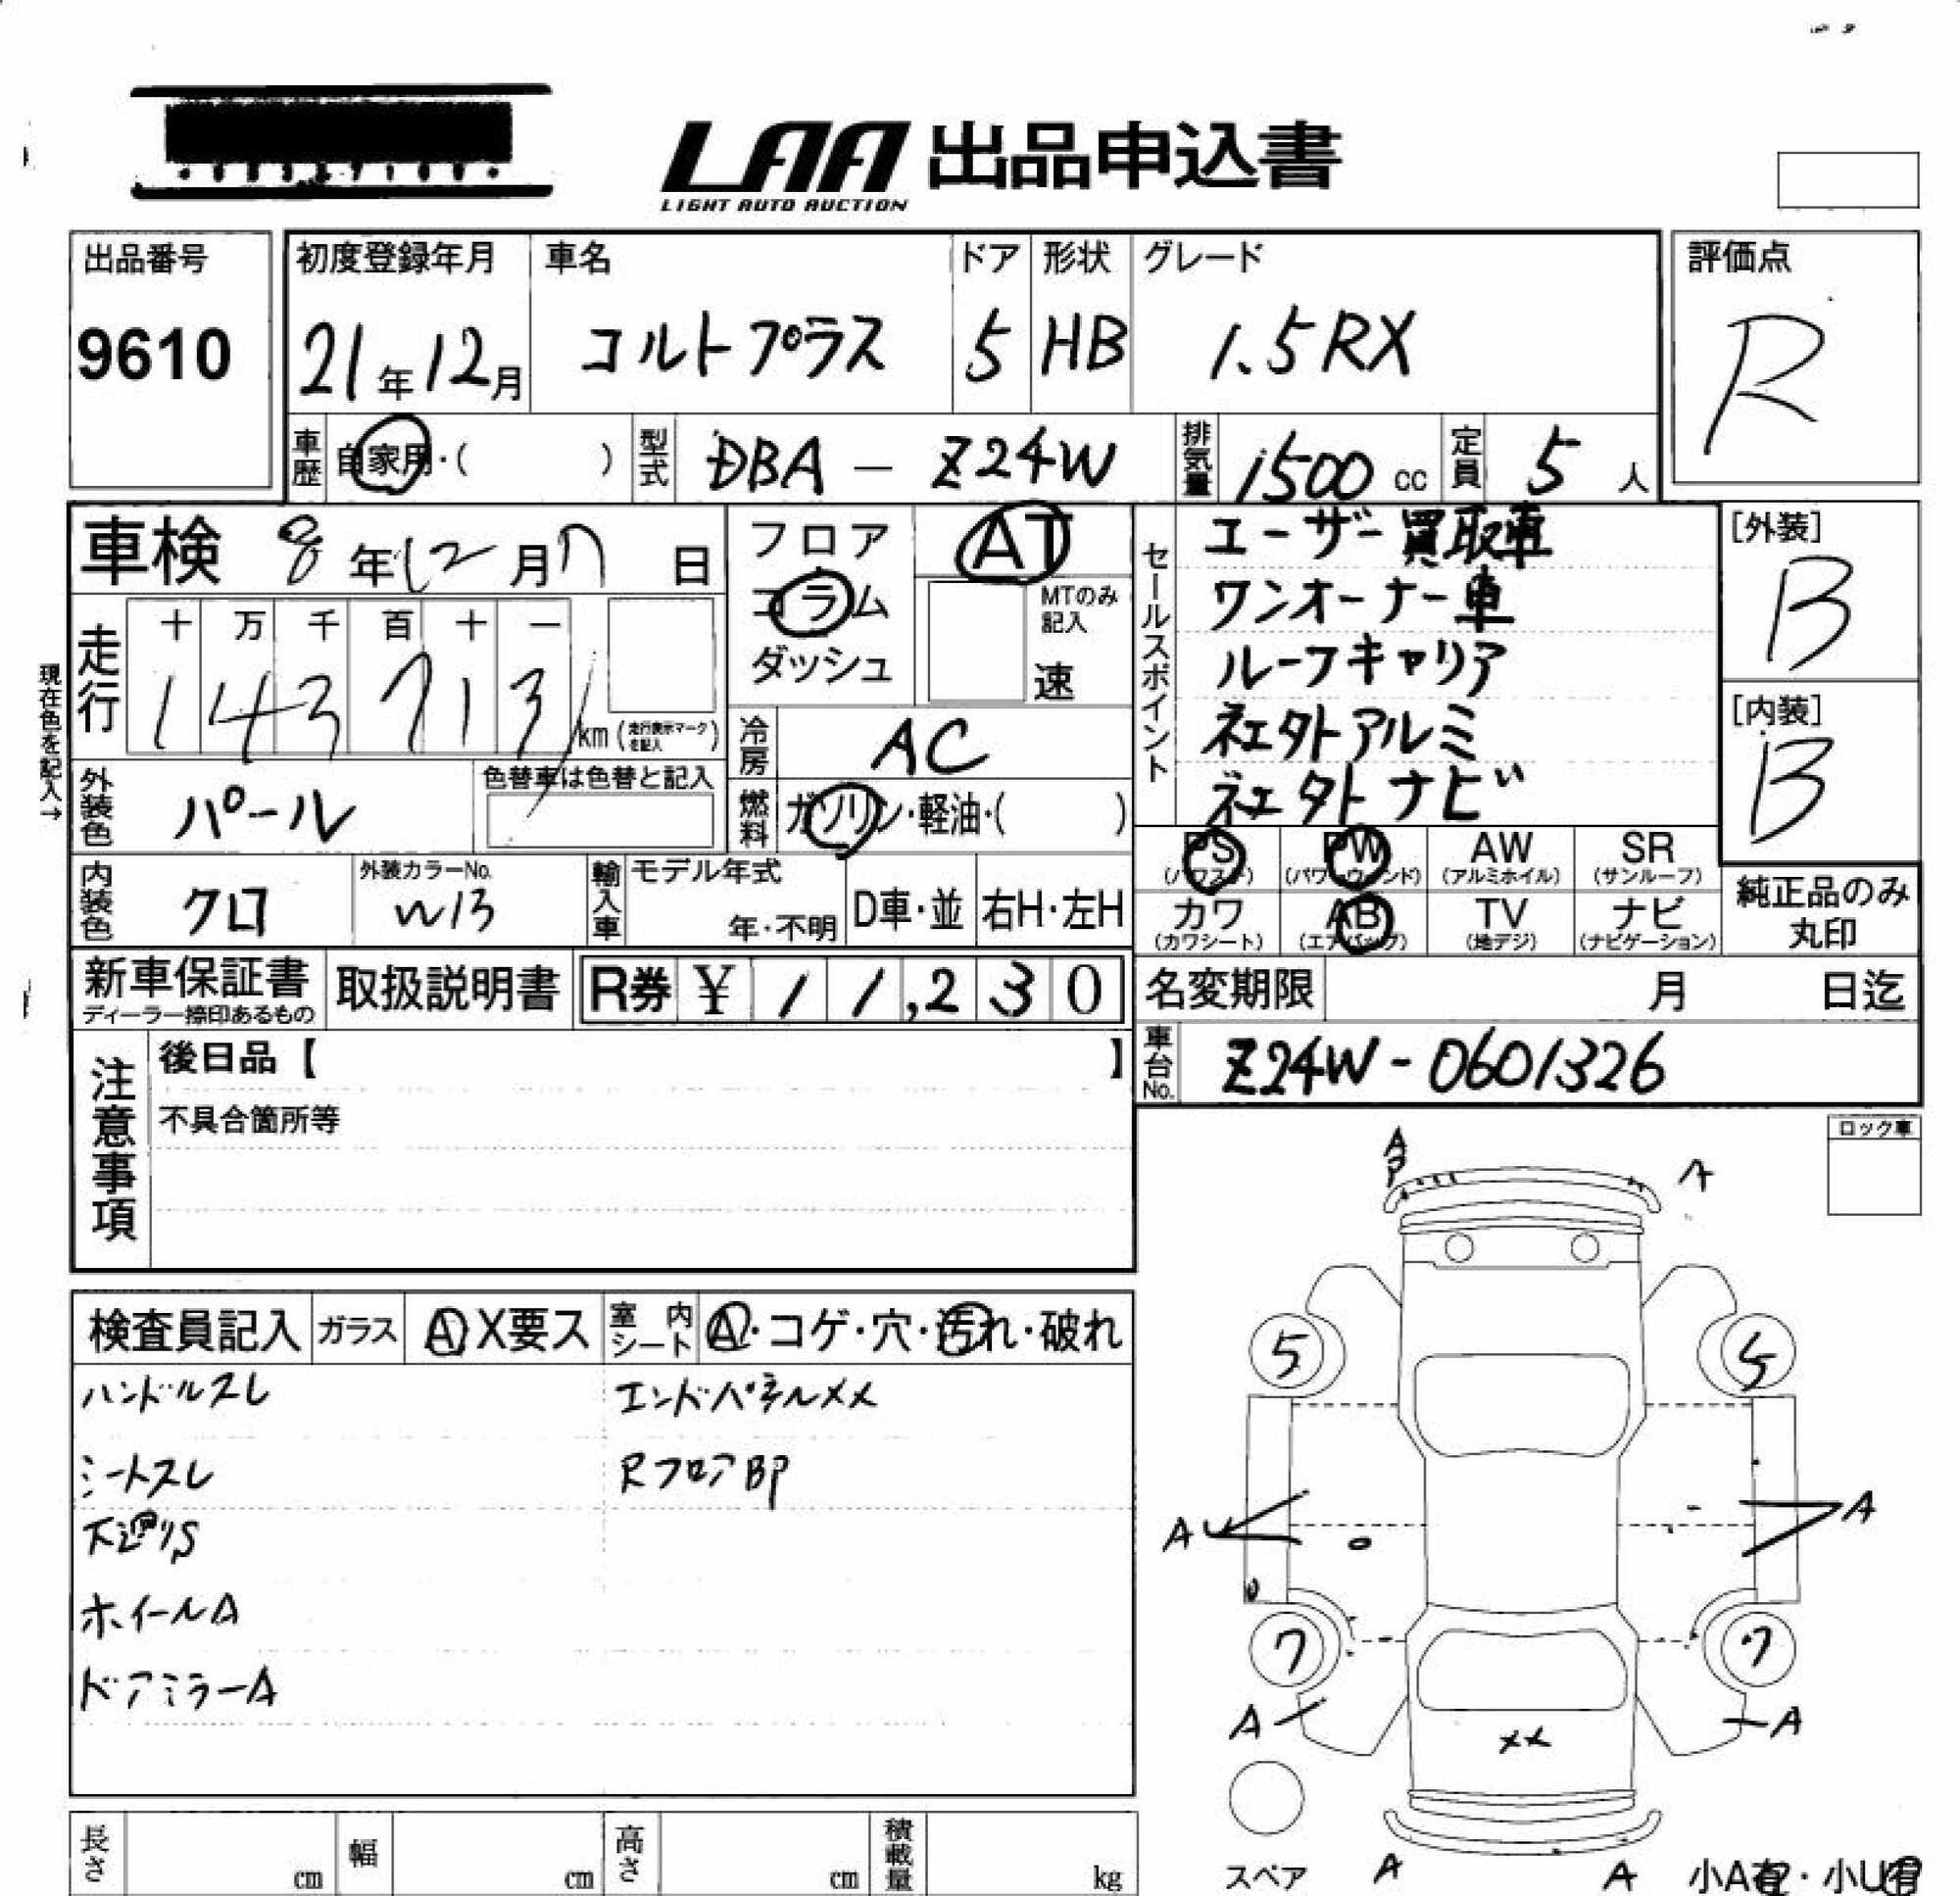 LAA 出品申込書
LIGHT AUTO AUCTION
出品番号
9610
初度登録年月
21年12月
車名
コルトプラス
ドア
5
形状
HB
グレード
1.5RX
評価点
R
車歴 自家用・( )
型式 DBA - Z24W
排気量 1500 cc
定員 5 人
車検 8年12月17日
フロア
コラム
ダッシュ
AT
MTのみ記入
速
セールスポイント
ユーザー買取車
ワンオーナー車
ルーフキャリア
社外アルミ
社外ナビ
[外装]
B
[内装]
B
現在色を記入→
走行
十 万 千 百 十 一
1 4 3 7 1 3 km (走行表示マークを記入)
冷房 AC
外装色 パール
色替車は色替と記入
燃料 ガソリン・軽油・( )
内装色 クロ
外装カラーNo.
W13
輸入車
モデル年式
年・不明
D車・並
右H・左H
PS
(パワステ)
PW
(パワーウィンド)
AW
(アルミホイル)
SR
(サンルーフ)
カワ
(カワシート)
AB
(エアバッグ)
TV
(地デジ)
ナビ
(ナビゲーション)
純正品のみ
丸印
新車保証書
ディーラー捺印あるもの
取扱説明書
R券 ¥ 11,230
名変期限 月 日迄
車台No. Z24W-0601326
注意事項
後日品【 】
不具合箇所等
ロック車
検査員記入
ガラス A X要ス
室内シート A・コゲ・穴・汚れ・破れ
ハンドルスレ
エンドパネルXX
シートスレ
RフロアBP
下廻りS
ホイールA
ドアミラーA
A
A
5
5
A
A
7
7
A
A
XX
スペア
A
A
小A有・小U有
長さ cm
幅 cm
高さ cm
積載量 kg